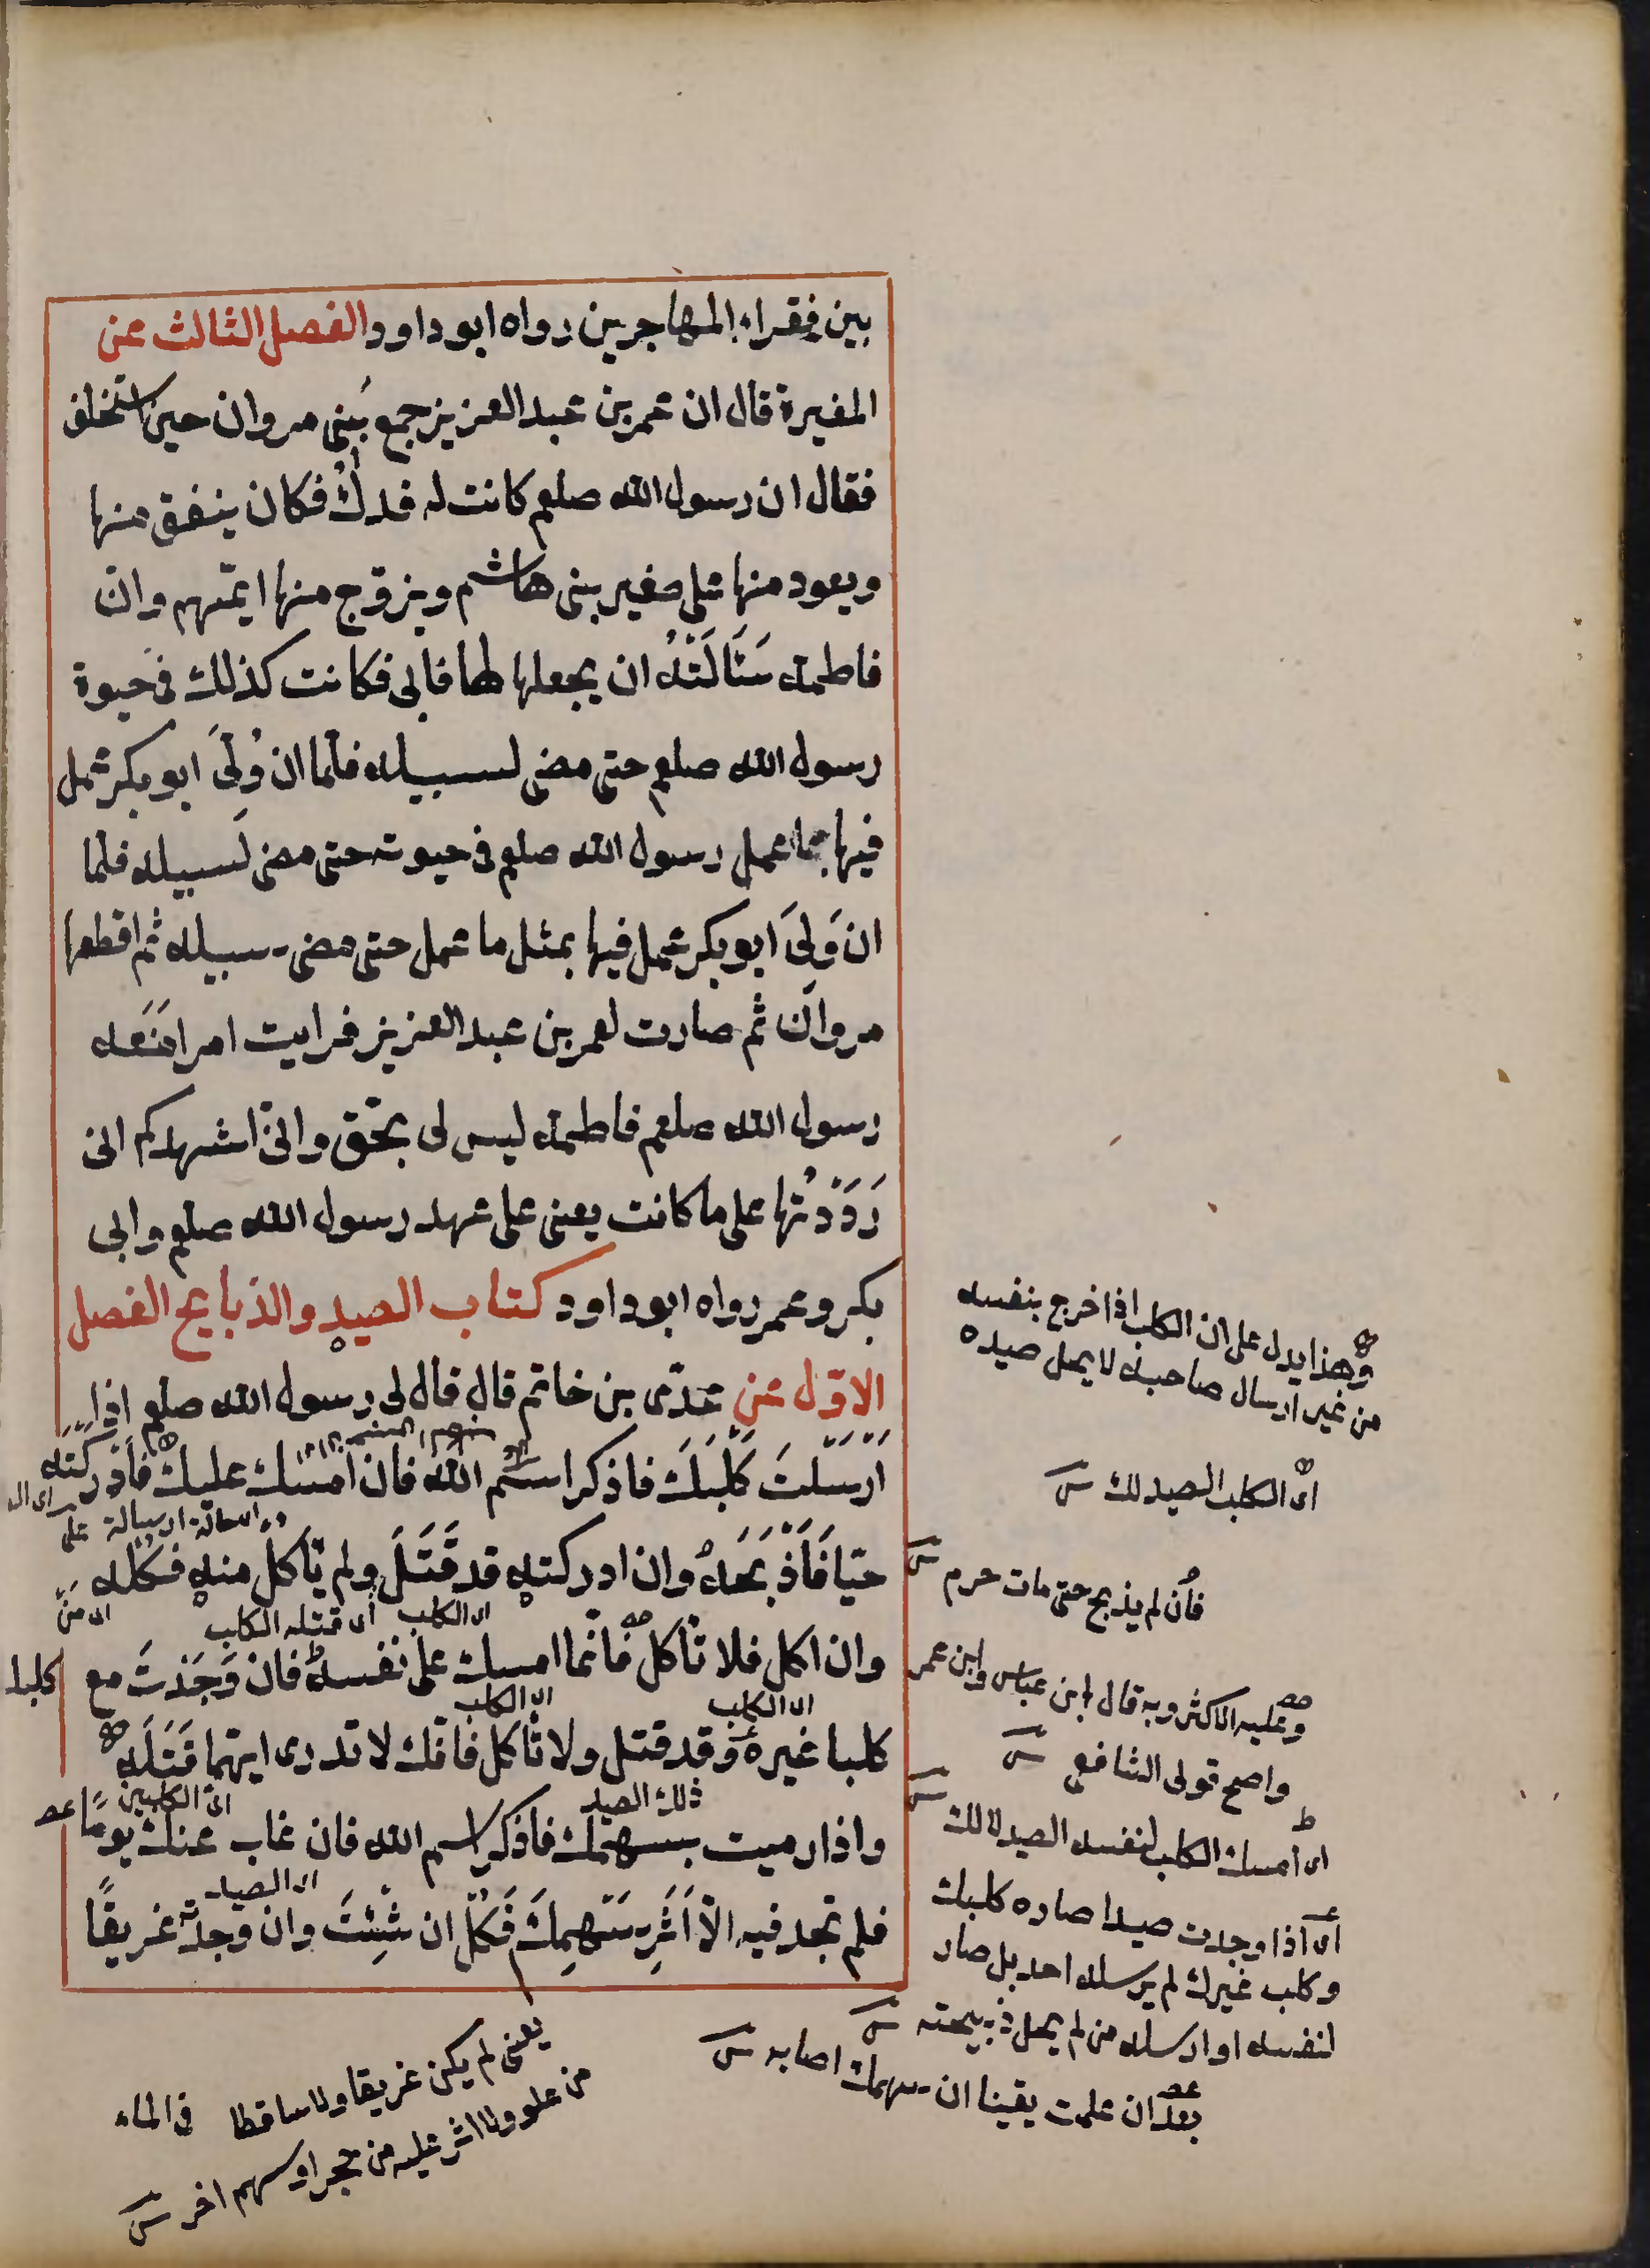 بين فقراء المهاجرين رواه ابو داود الفصل الثالث عن
المغيرة قال ان عمر بن عبد العزيز جمع بَنِي مروان حين استخلف
فقال ان رسول الله صلعم كانت له فدكُ فكان ينفق منها
ويعود منها على صغير بنى هاشم ويزوّج منها ايّمهم وانّ
فاطمة سَئَالَتْهُ ان يجعلها لها فابى فكانت كذلك فى حيوة
رسول الله صلعم حتى مضى لسبيله فلمّا ان وُلّىَ ابو بكر عمل
فيها بما عمل رسول الله صلعم فى حيوته حتى مضى لسبيله فلمّا
ان وَلِىَ ابو بكر عمل فيها بمثل ما عمل حتى مضى سبيله ثم اقطعها
مروان ثم صارت لعمر بن عبد العزيز فرايت امرا مَنَعَه
رسول الله صلعم فاطمة ليس لى بحقّ وانّى اشهدكم انى
رَدَدْتُها على ما كانت يعنى على عهد رسول الله صلعم وابى
بكر وعمر رواه ابو داود كتاب الصيد والذبايح الفصل
الاوّل عن عدّى بن خاتم قال قال لى رسول الله صلعم اذا
اَرْسَلْتَ كَلْبَكَ فاذكر اسم الله فان امسك عليك فاَدْرَكْتَه
حيّا فَاَذْبَحْهُ وان ادركته قد قَتَلَ ولم يَاكل منه فكُلْه
وان اكل فلا تَاكل فانّما امسك على نفسه فان وَجَدْتَ مع كلبك
كلبا غيره وقد قتل ولا تَاكل فانّك لا تدرى ايّهما قَتَلَه
واذا رميت بسهمك فاذكر اسم الله فان غاب عنك يومًا
فلم تجد فيه الّا اَثَرِ سَهمِكَ فَكُلْ ان شِئتَ وان وجدتّه غريقًا
اى الكلب
اى قتله الكلب
اى الكلب
اى الكلب
ذلك الصيد
اى الكلبين
اى الصيد
وهذا يدل على ان الكلب اذا خرج بنفسه
من غير ارسال صاحبه لا يحل صيده
اى الكلب الصيد لك
فان لم يذبح حتى مات حرم
وعليه الاكثر وبه قال ابن عباس وابن عمر
واصح قولى الشافعى
اى امسك الكلب لنفسه الصيد لا لك
اى اذا وجدت صيدا صاده كلبك
وكلب غيرك لم يرسله احد بل صاد
لنفسه او ارسله من لم يحل ذبيحته
بعد ان علمت يقينا ان سهمك اصابه
يعنى لم يكن غريقا ولا ساقطا فى الماء
من علو ولا اثر عليه من حجر او سهم اخر